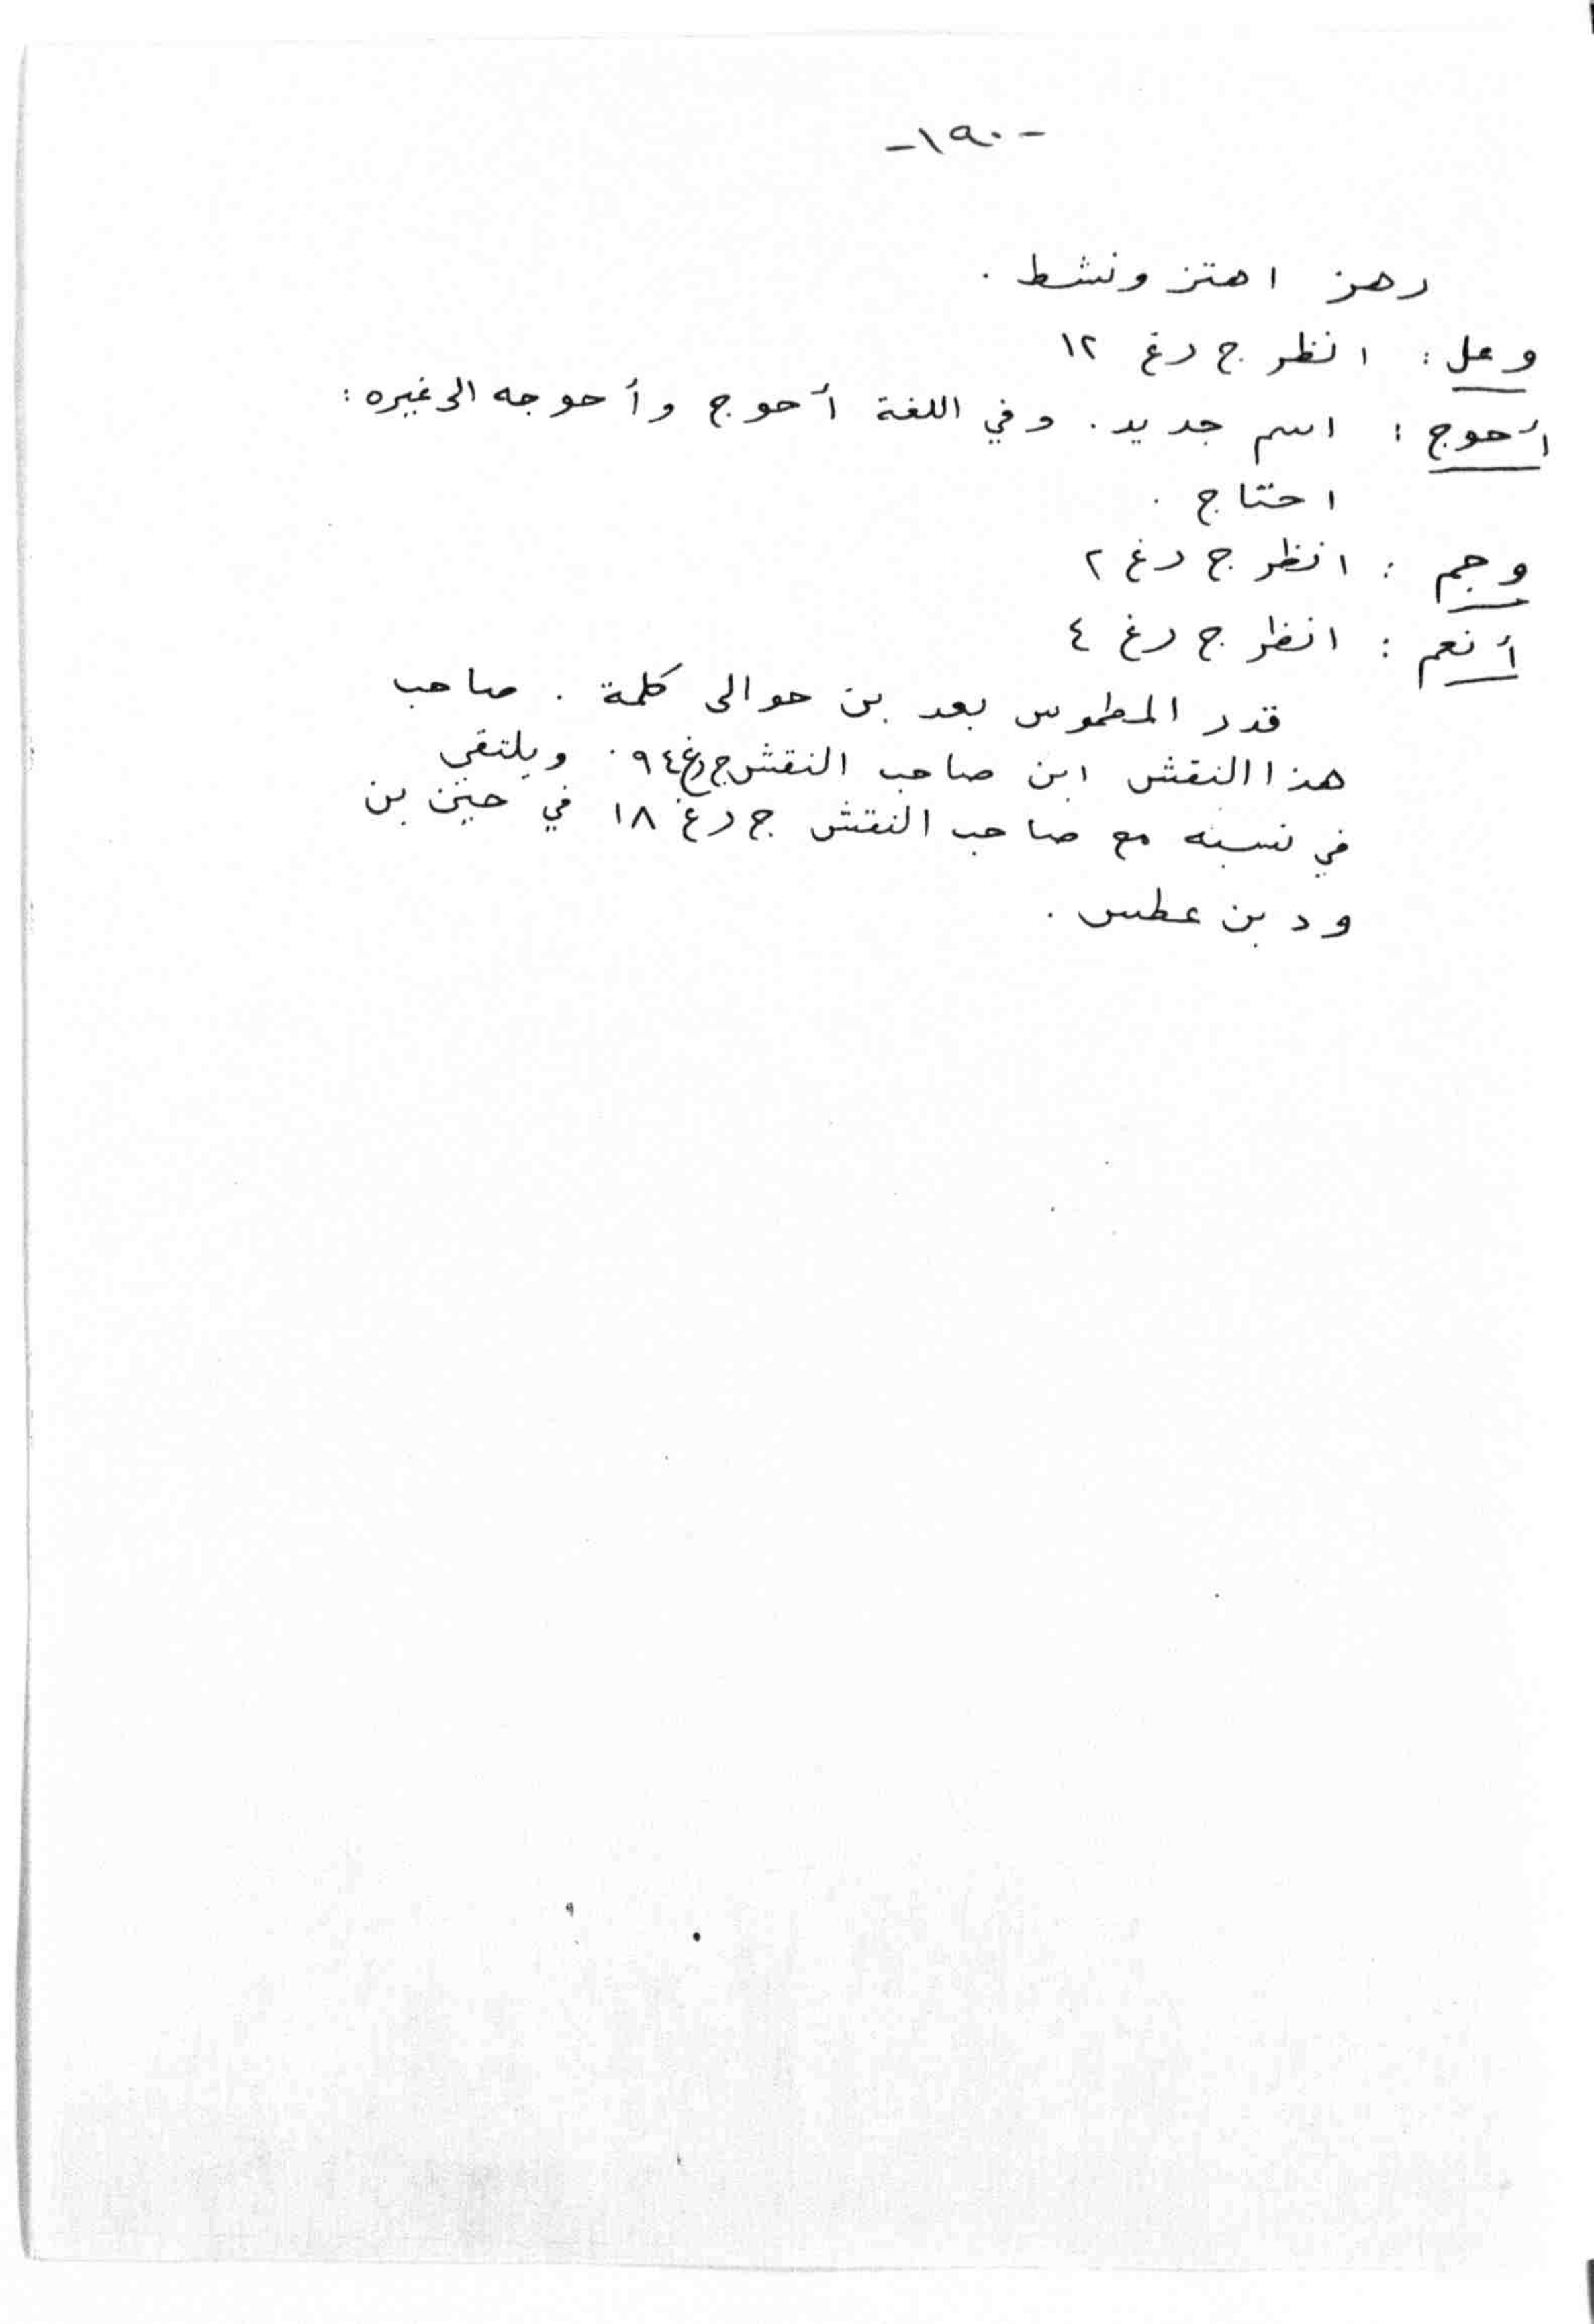 -١٩٠-
رهز اهتز ونشط .
وعل : انظر ج رغ ١٢
أحوج : اسم جديد . وفي اللغة أحوج وأحوجه الى غيره :
احتاج .
وجم : انظر ج رغ ٢
أنعم : انظر ج رغ ٤
قدر المطموس بعد بن حوالى كلمة . صاحب
هذا النقش ابن صاحب النقش ج رغ ٩٤ . ويلتقي
في نسبه مع صاحب النقش ج رغ ١٨ في حنين بن
ود بن عطس .